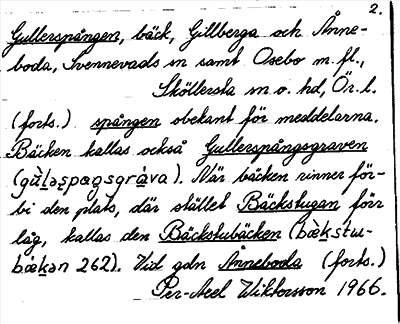 2.
Gullerspången, bäck, Gillberga och Ånne-
boda, Svennevads sn samt Osebo m.fl.,
Sköllersta sn o. hd, Ör. l.
(forts.) spången obekant för meddelarna.
Bäcken kallas också Gullerspångsgraven
När bäcken rinner för-
bi den plats, där stället Bäckstugan förr
låg, kallas den Bäckstubäcken (bæ̀kstu-
bæ̀kən 262). Vid gdn Ånneboda (forts.)
Per-Axel Wiktorsson 1966.